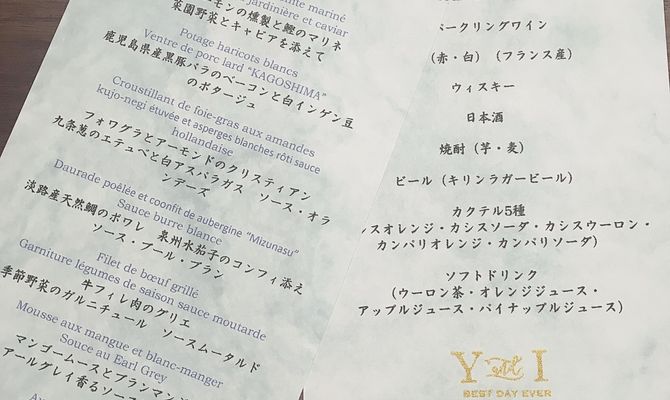 mariné
jardinière et caviar
モンの燻製と鰹のマリネ
菜園野菜とキャビアを添えて
Potage haricots blancs
Ventre de porc lard "KAGOSHIMA"
鹿児島県産黒豚バラのベーコンと白インゲン豆
のポタージュ
Croustillant de foie-gras aux amandes
kujo-negi étuvée et asperges blanches rôti sauce
hollandaise
フォワグラとアーモンドのクリスティアン
九条葱のエテュベと白アスパラガス ソース・オラ
ンデーズ
Daurade poêlée et coonfit de aubergine "Mizunasu"
Sauce burre blance
淡路産天然鯛のポワレ 泉州水茄子のコンフィ添え
ソース・ブール・ブラン
Filet de bœuf grillé
Garniture légumes de saison sauce moutarde
牛フィレ肉のグリエ
季節野菜のガルニチュール ソースムータルド
Mousse aux mangue et blanc-manger
Souce au Earl Grey
マンゴームースとブランマンジ
アールグレイ香るソース
パークリングワイン
(赤・白)(フランス産)
ウィスキー
日本酒
焼酎(芋・麦)
ビール(キリンラガービール)
カクテル5種
スオレンジ・カシスソーダ・カシスウーロン・
カンパリオレンジ・カンパリソーダ)
ソフトドリンク
(ウーロン茶・オレンジジュース・
アップルジュース・パイナップルジュース)
Y and I
BEST DAY EVER